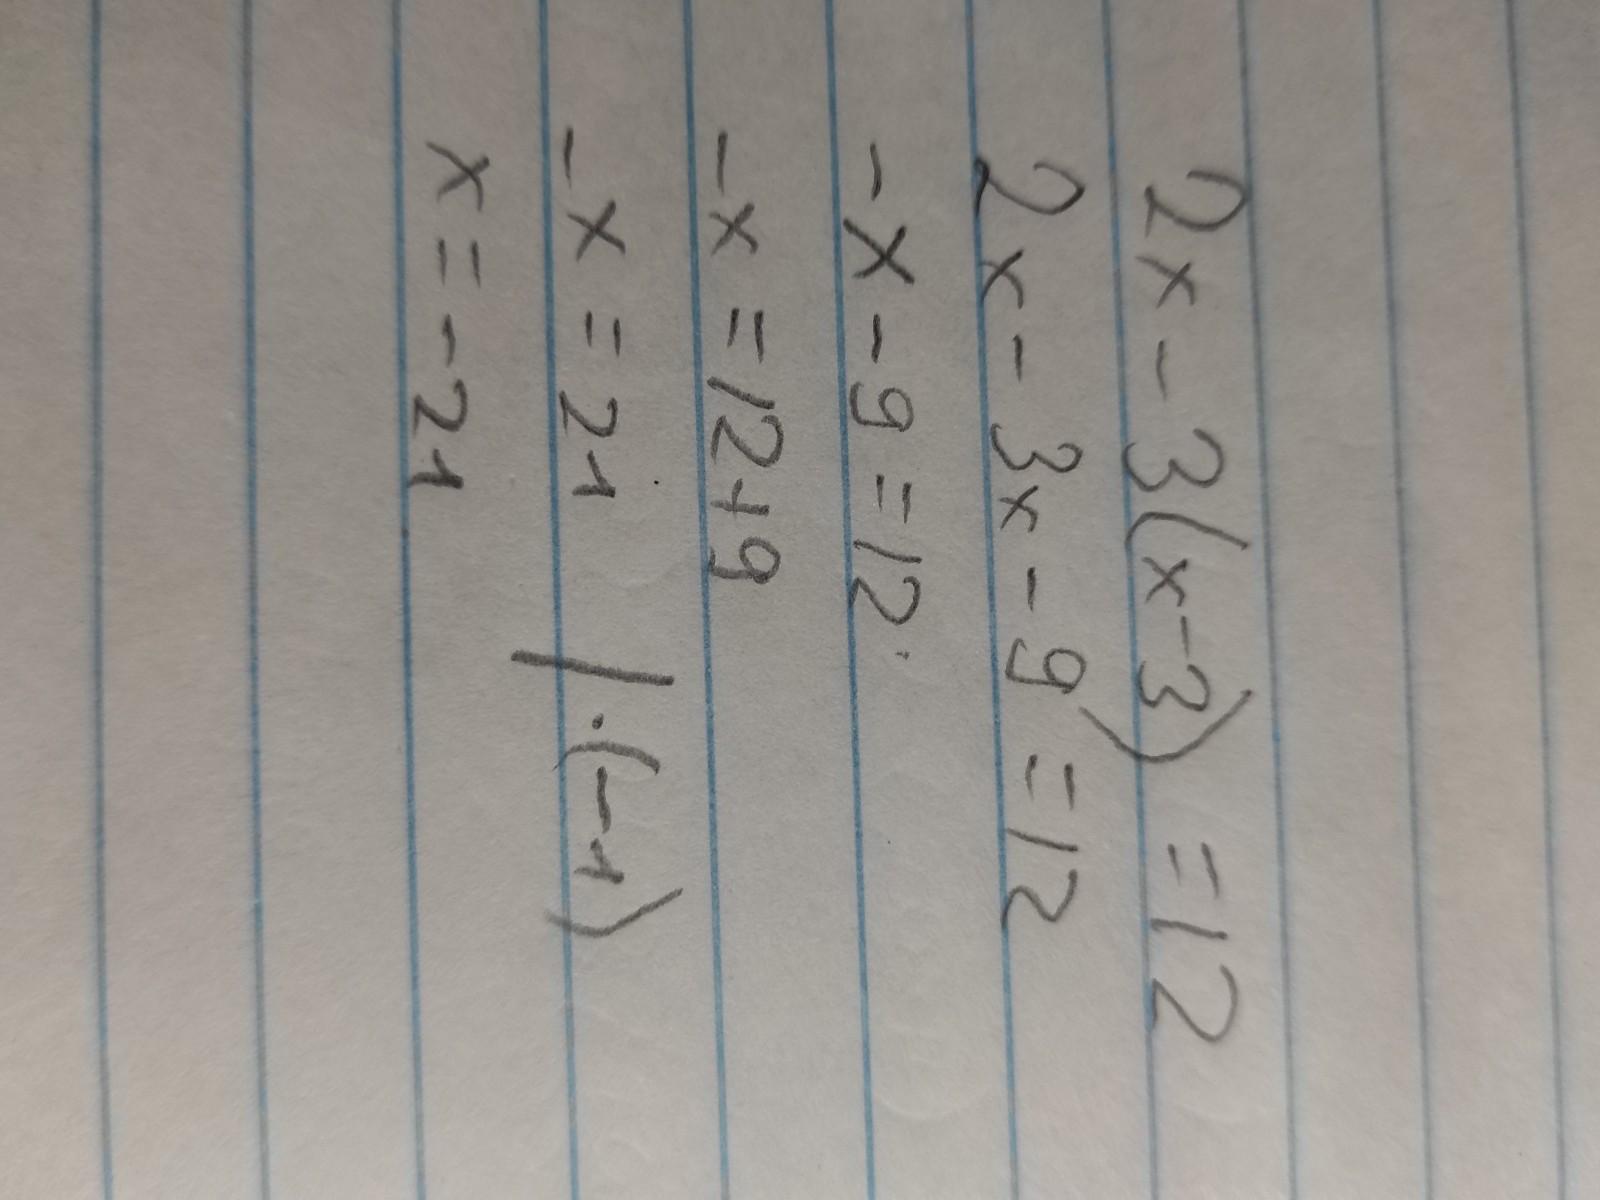 2x - 3(x-3) = 12
2x - 3x - 9 = 12
-x - 9 = 12
-x = 12+9
-x = 21 | · (-1)
x = -21